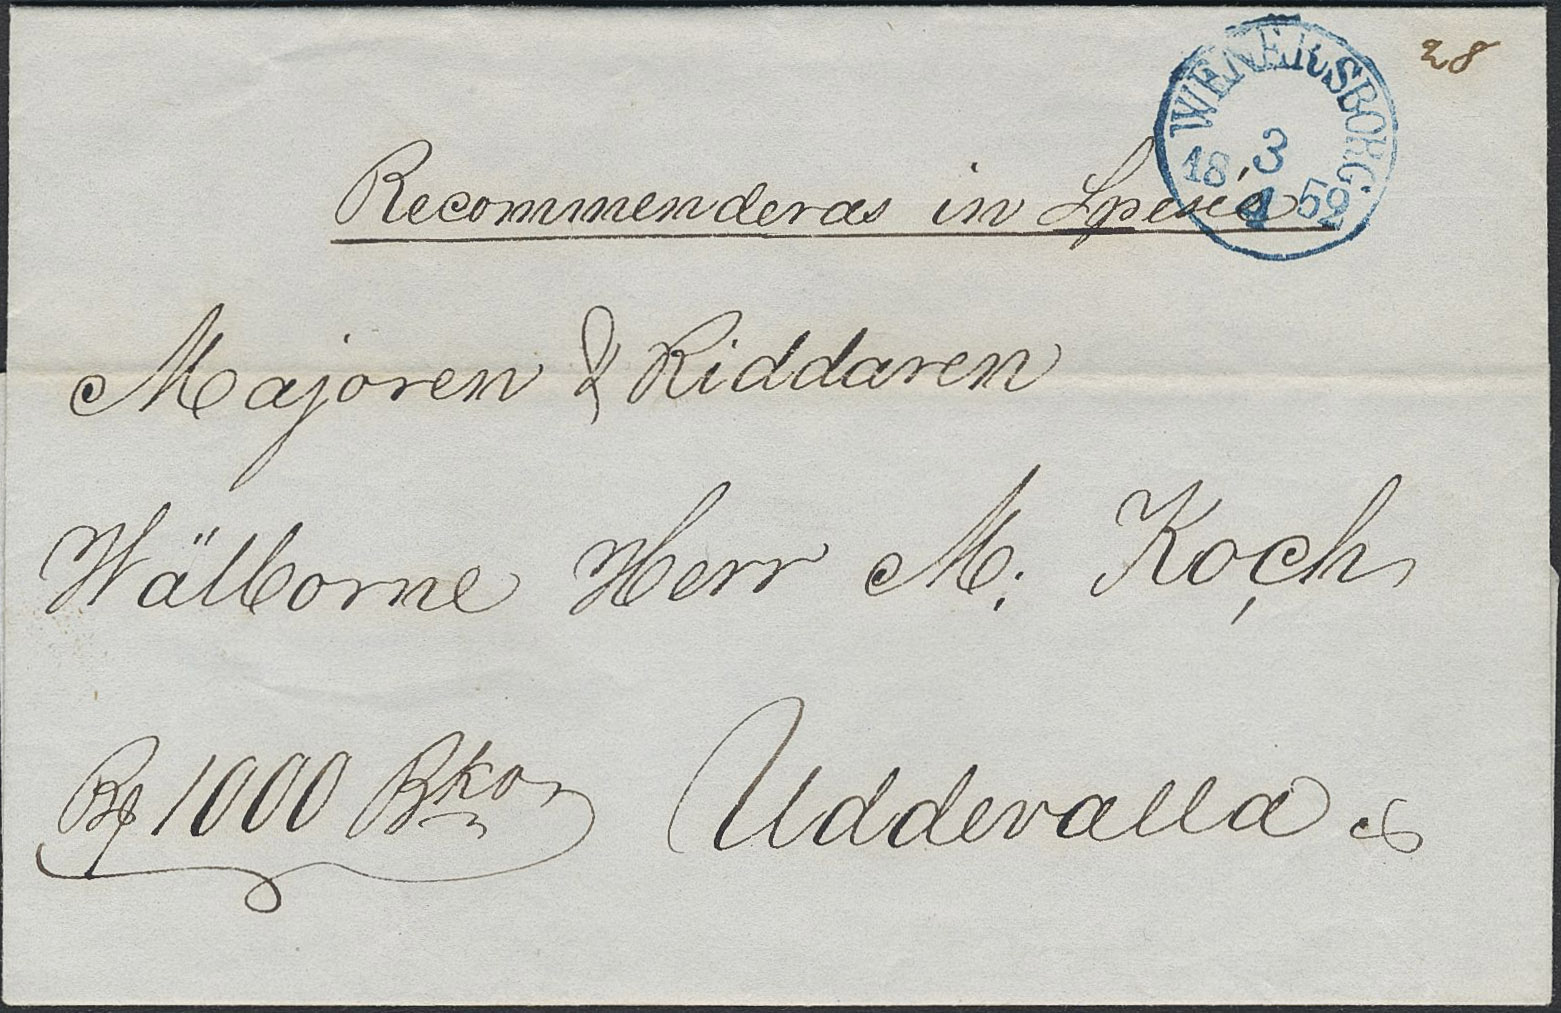 28
WENERSBORG
3
18 52
4
Recommenderas in Specie
Majoren & Riddaren
Wälborne Herr M. Koch
1000 Bko Uddevalla